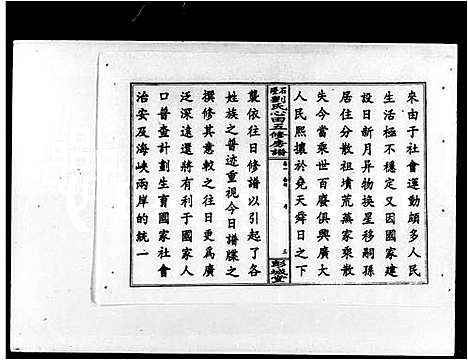 來由于社會運動頗多人民
生活極不穩定又因國家建
設日新月异物換星移嗣孫
居住分散祖墳荒蕪家乘散
失今當乘世百廢俱興廣大
人民熙攘於堯天舜日之下
劉氏心田五修房譜
彭城堂
襲依往日修譜以引起了各
姓族之普迹重視今日譜牒之
撰修其意較之往日更爲廣
泛深遠還將有利于國家人
口普查計劃生育國家社會
治安及海峽兩岸的統一